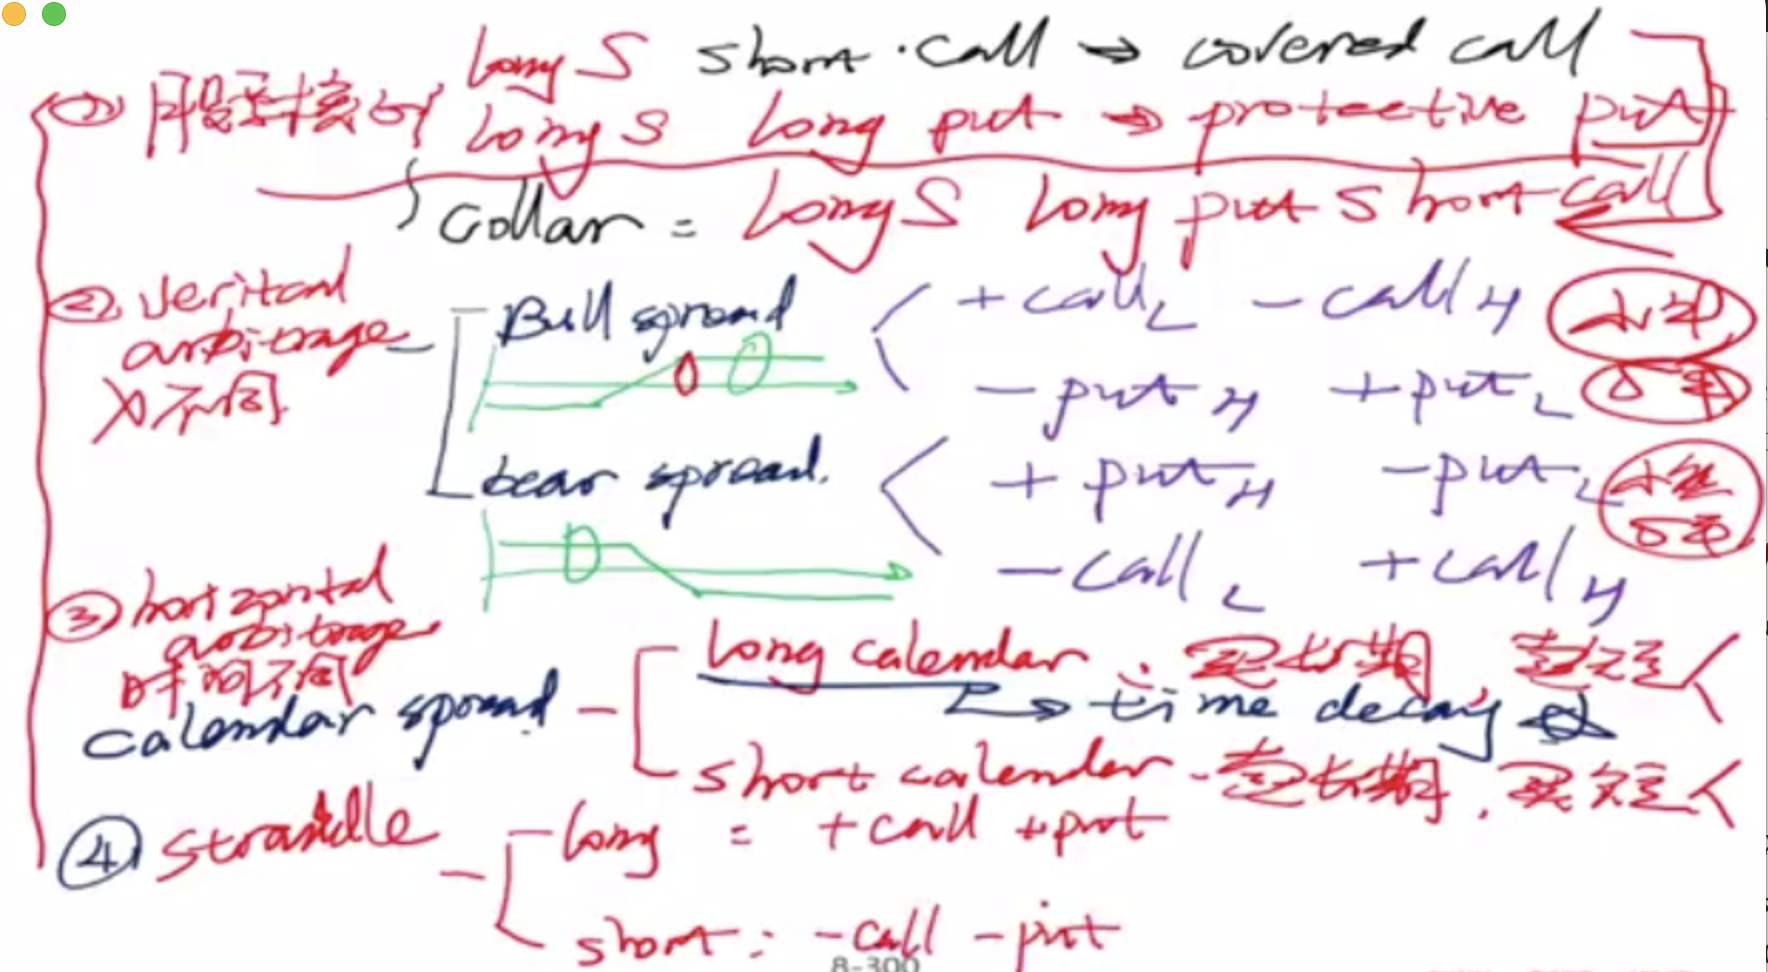 ① 用股票对接的 long S short · call → covered call
long S long put → protective put
collar = long S long put short call
② veritcal
arbitrage
X不同
Bull spread + call L - call H
- put H + put L
bear spread. + put H - put L
- call L + call H
③ horizontal
arbitrage
时间不同
calendar spread
long calendar : 买长期 卖短
→ time decay
short calendar - 卖长期, 买短
④ straddle
long = + call + put
short : - call - put
8-300